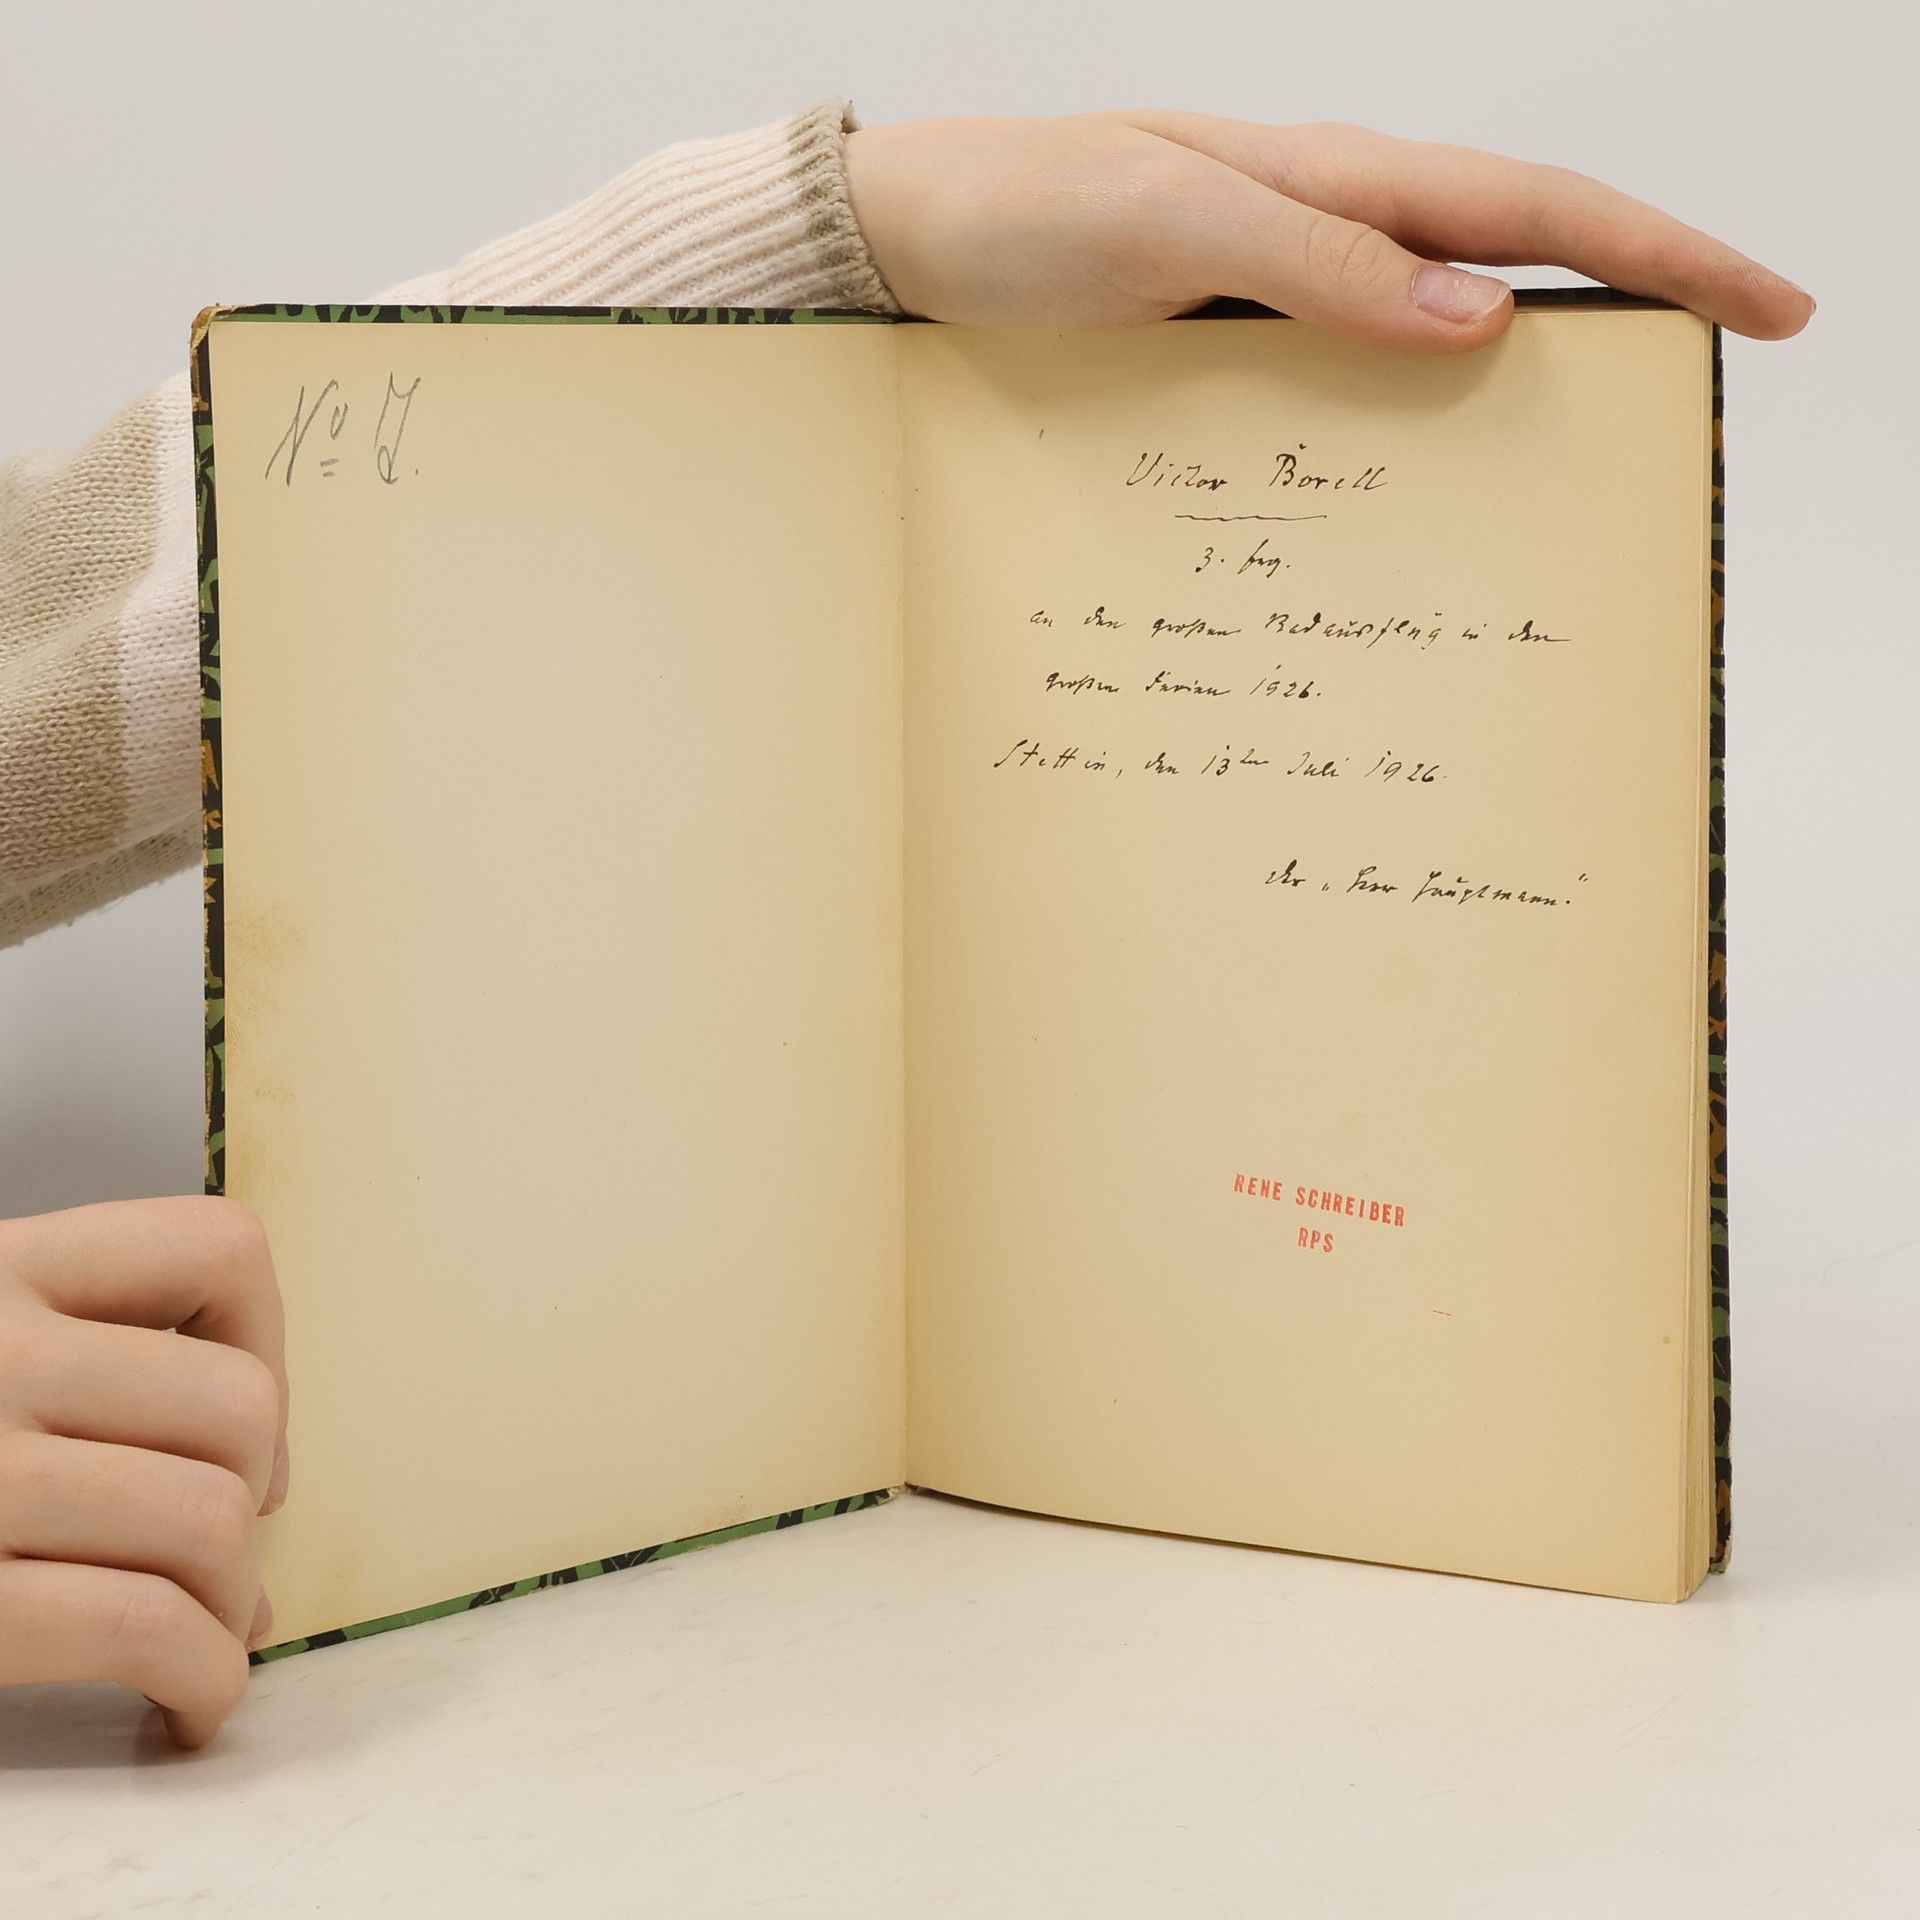 No 7.
Victor Borell
3. frg.
an den großen Radausflug in den
großen Ferien 1926.
Stettin, den 13ten Juli 1926.
der „Herr Hauptmann."
RENE SCHREIBER
RPS